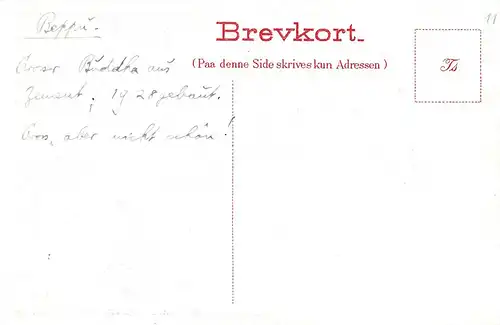 Beppu.
11
Brevkort.
(Paa denne Side skrives kun Adressen)
Ts
Grosser Buddha aus
Zement, 1928 gebaut.
Gross, aber nicht schön!